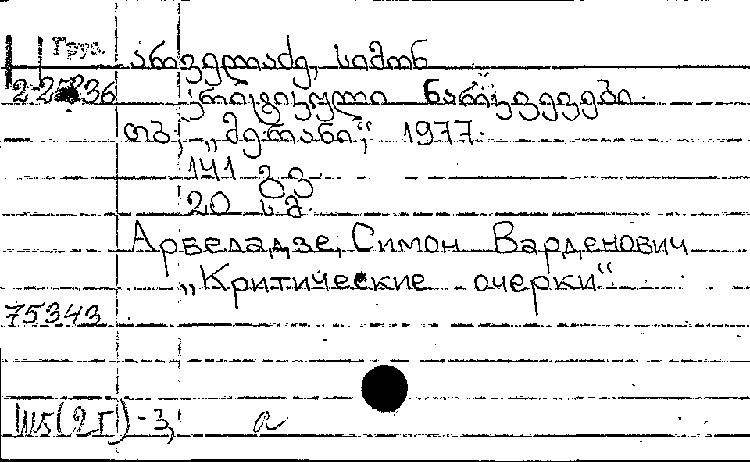 Груз.
არველაძე, სიმონ
2-25
36
კრიტიკული ნარკვევები.
თბ., „მერანი“, 1977.
141 გვ
20 სმ.
Арвеладзе, Симон Варденович
„Критические очерки“
75343
Ш5(2Г)-3,
а